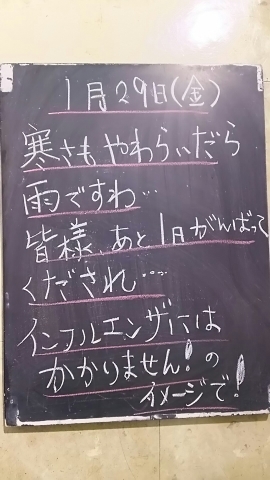 1月29日(金)
寒さもやわらいだら
雨ですね…
皆様、あと1日がんばって
くだされ….
インフルエンザには
かかりません!の
イメージで!